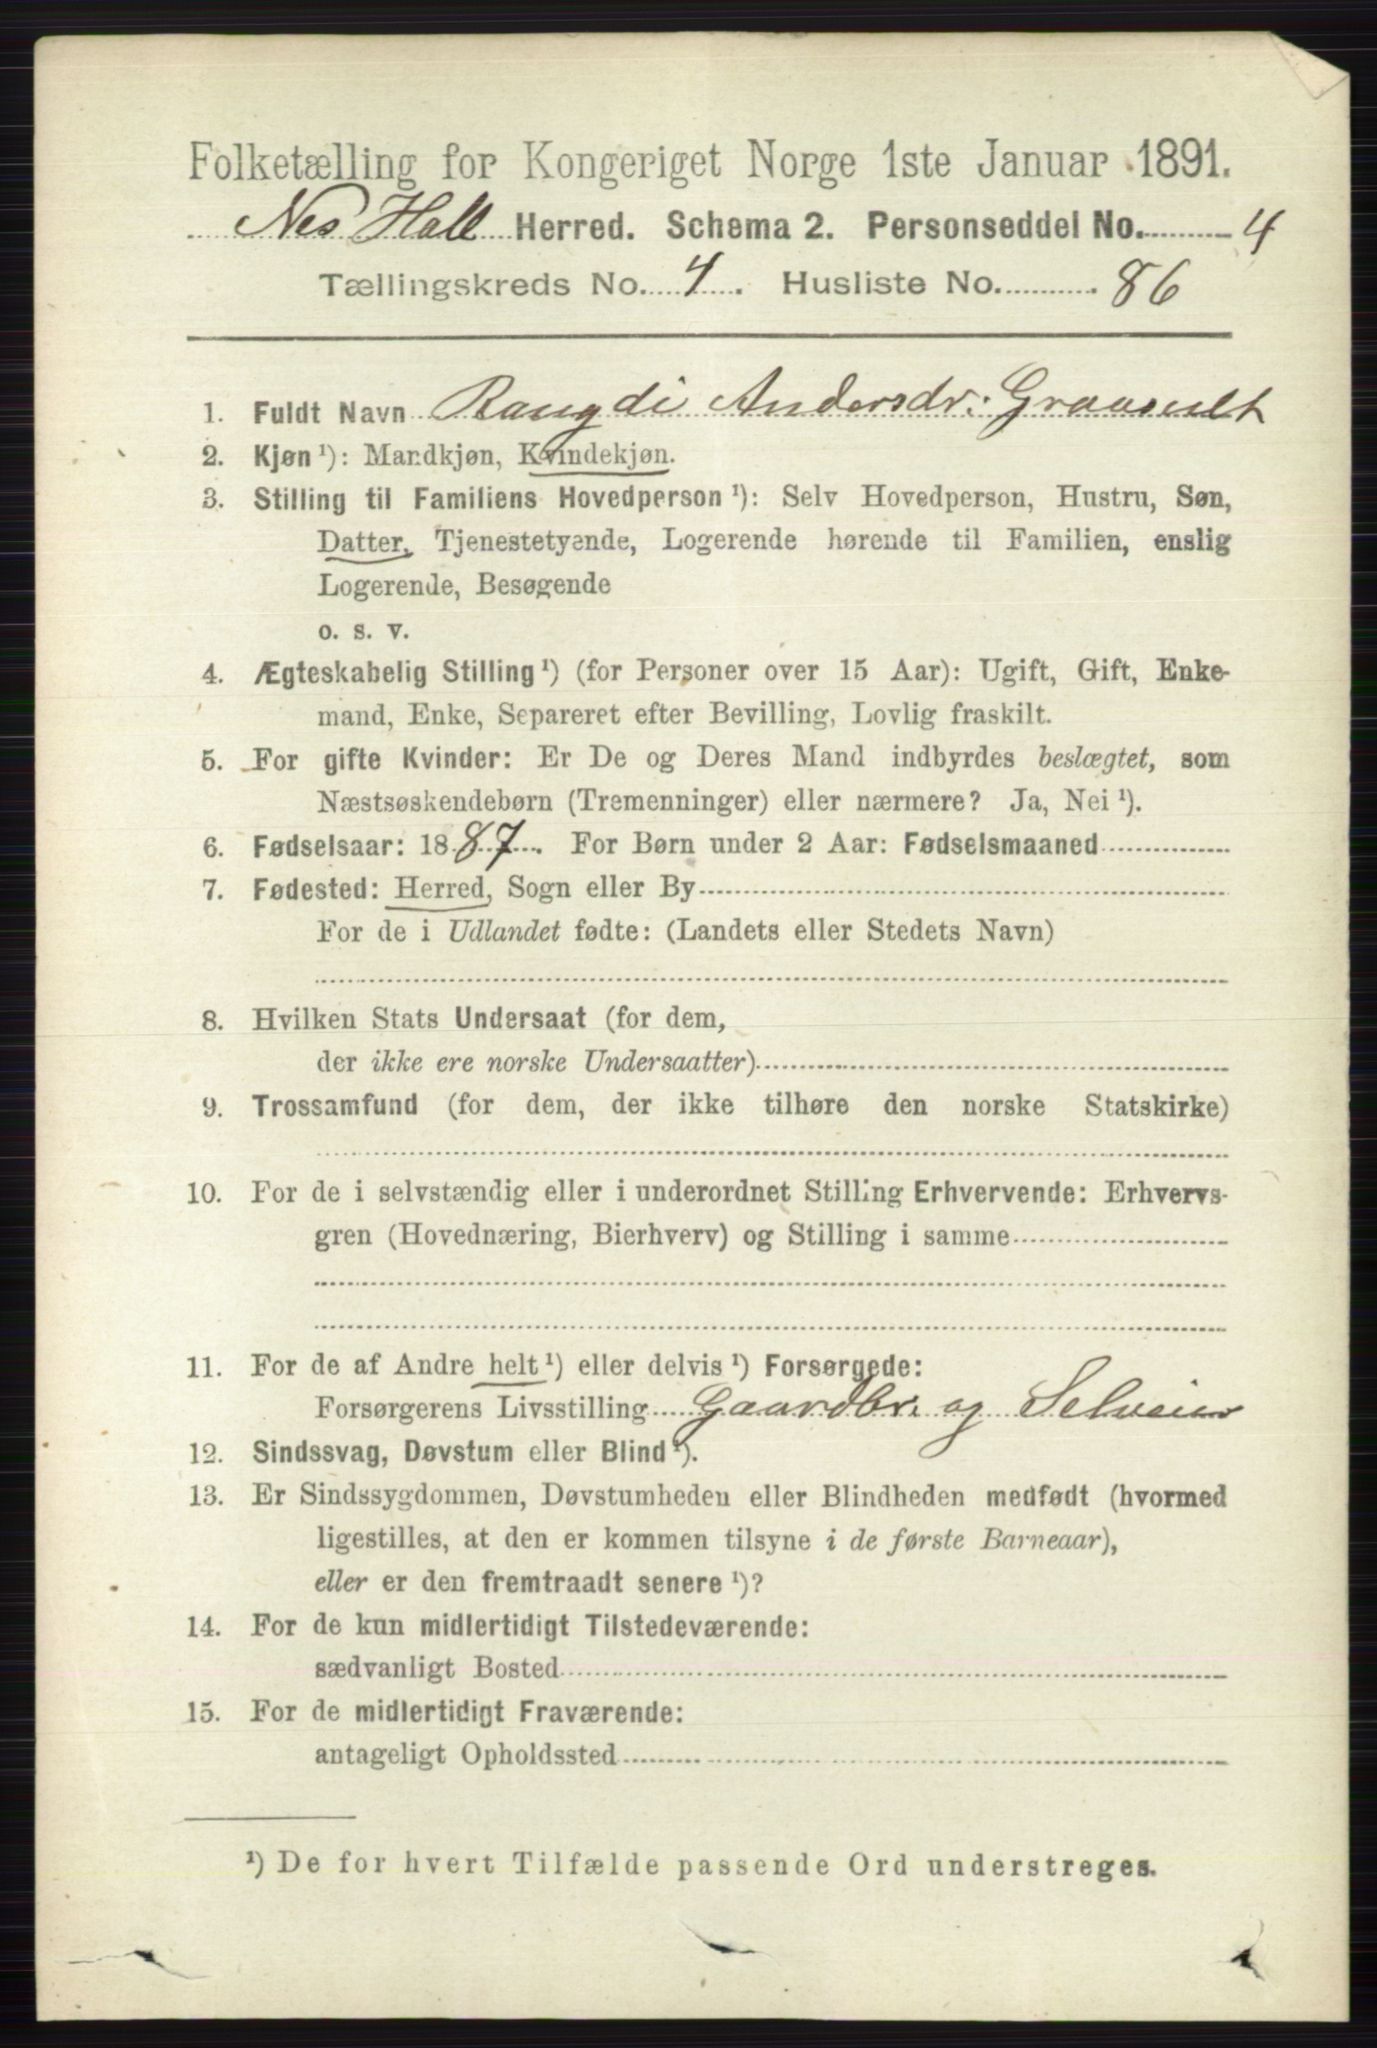 Folketælling for Kongeriget Norge 1ste Januar 1891.
Nes Hall Herred. Schema 2. Personseddel No. 4
Tællingskreds No. 4. Husliste No. 86
1. Fuldt Navn Rangdi Andersdr: Graasult
2. Kjøn ¹): Mandkjøn, Kvindekjøn.
3. Stilling til Familiens Hovedperson ¹): Selv Hovedperson, Hustru, Søn,
Datter, Tjenestetyende, Logerende hørende til Familien, enslig
Logerende, Besøgende
o. s. v.
4. Ægteskabelig Stilling ¹) (for Personer over 15 Aar): Ugift, Gift, Enke-
mand, Enke, Separeret efter Bevilling, Lovlig fraskilt.
5. For gifte Kvinder: Er De og Deres Mand indbyrdes beslægtet, som
Næstsøskendebørn (Tremenninger) eller nærmere? Ja, Nei ¹).
6. Fødselsaar: 1887. For Børn under 2 Aar: Fødselsmaaned
7. Fødested: Herred, Sogn eller By
For de i Udlandet fødte: (Landets eller Stedets Navn)
8. Hvilken Stats Undersaat (for dem,
der ikke ere norske Undersaatter)
9. Trossamfund (for dem, der ikke tilhøre den norske Statskirke)
10. For de i selvstændig eller i underordnet Stilling Erhvervende: Erhvervs-
gren (Hovednæring, Bierhverv) og Stilling i samme
11. For de af Andre helt ¹) eller delvis ¹) Forsørgede:
Forsørgerens Livsstilling Gaardbr. og Selveier
12. Sindssvag, Døvstum eller Blind ¹).
13. Er Sindssygdommen, Døvstumheden eller Blindheden medfødt (hvormed
ligestilles, at den er kommen tilsyne i de første Barneaar),
eller er den fremtraadt senere ¹)?
14. For de kun midlertidigt Tilstedeværende:
sædvanligt Bosted
15. For de midlertidigt Fraværende:
antageligt Opholdssted
¹) De for hvert Tilfælde passende Ord understreges.